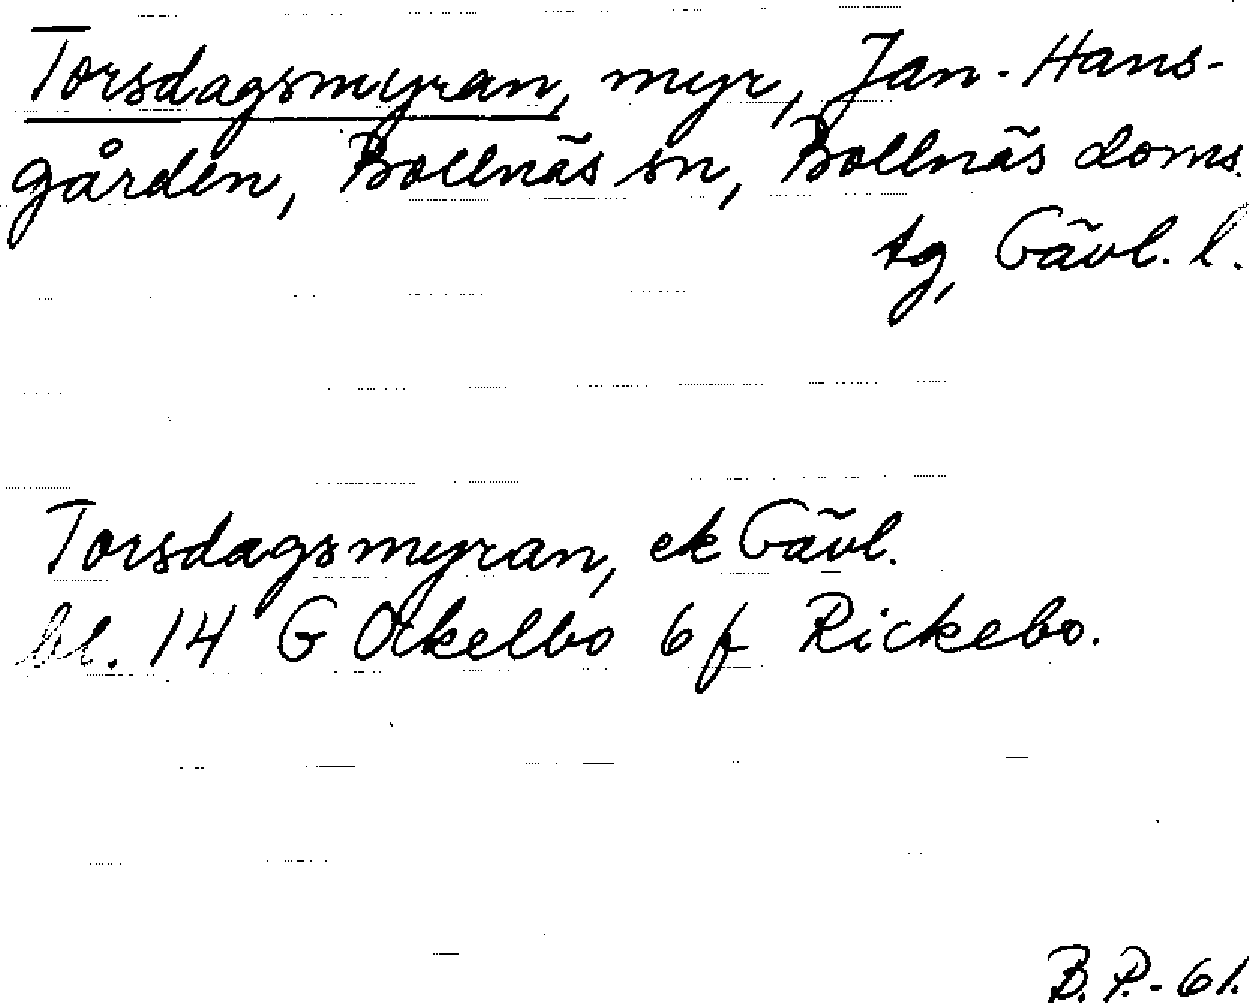 Torsdagsmyran, myr, Jan-Hans-
gården, Bollnäs sn, Bollnäs doms.
tg, Gävl. l.
Torsdagsmyran, ek Gävl.
bl. 14 G Ockelbo 6 f Rickebo.
B. P. - 61.